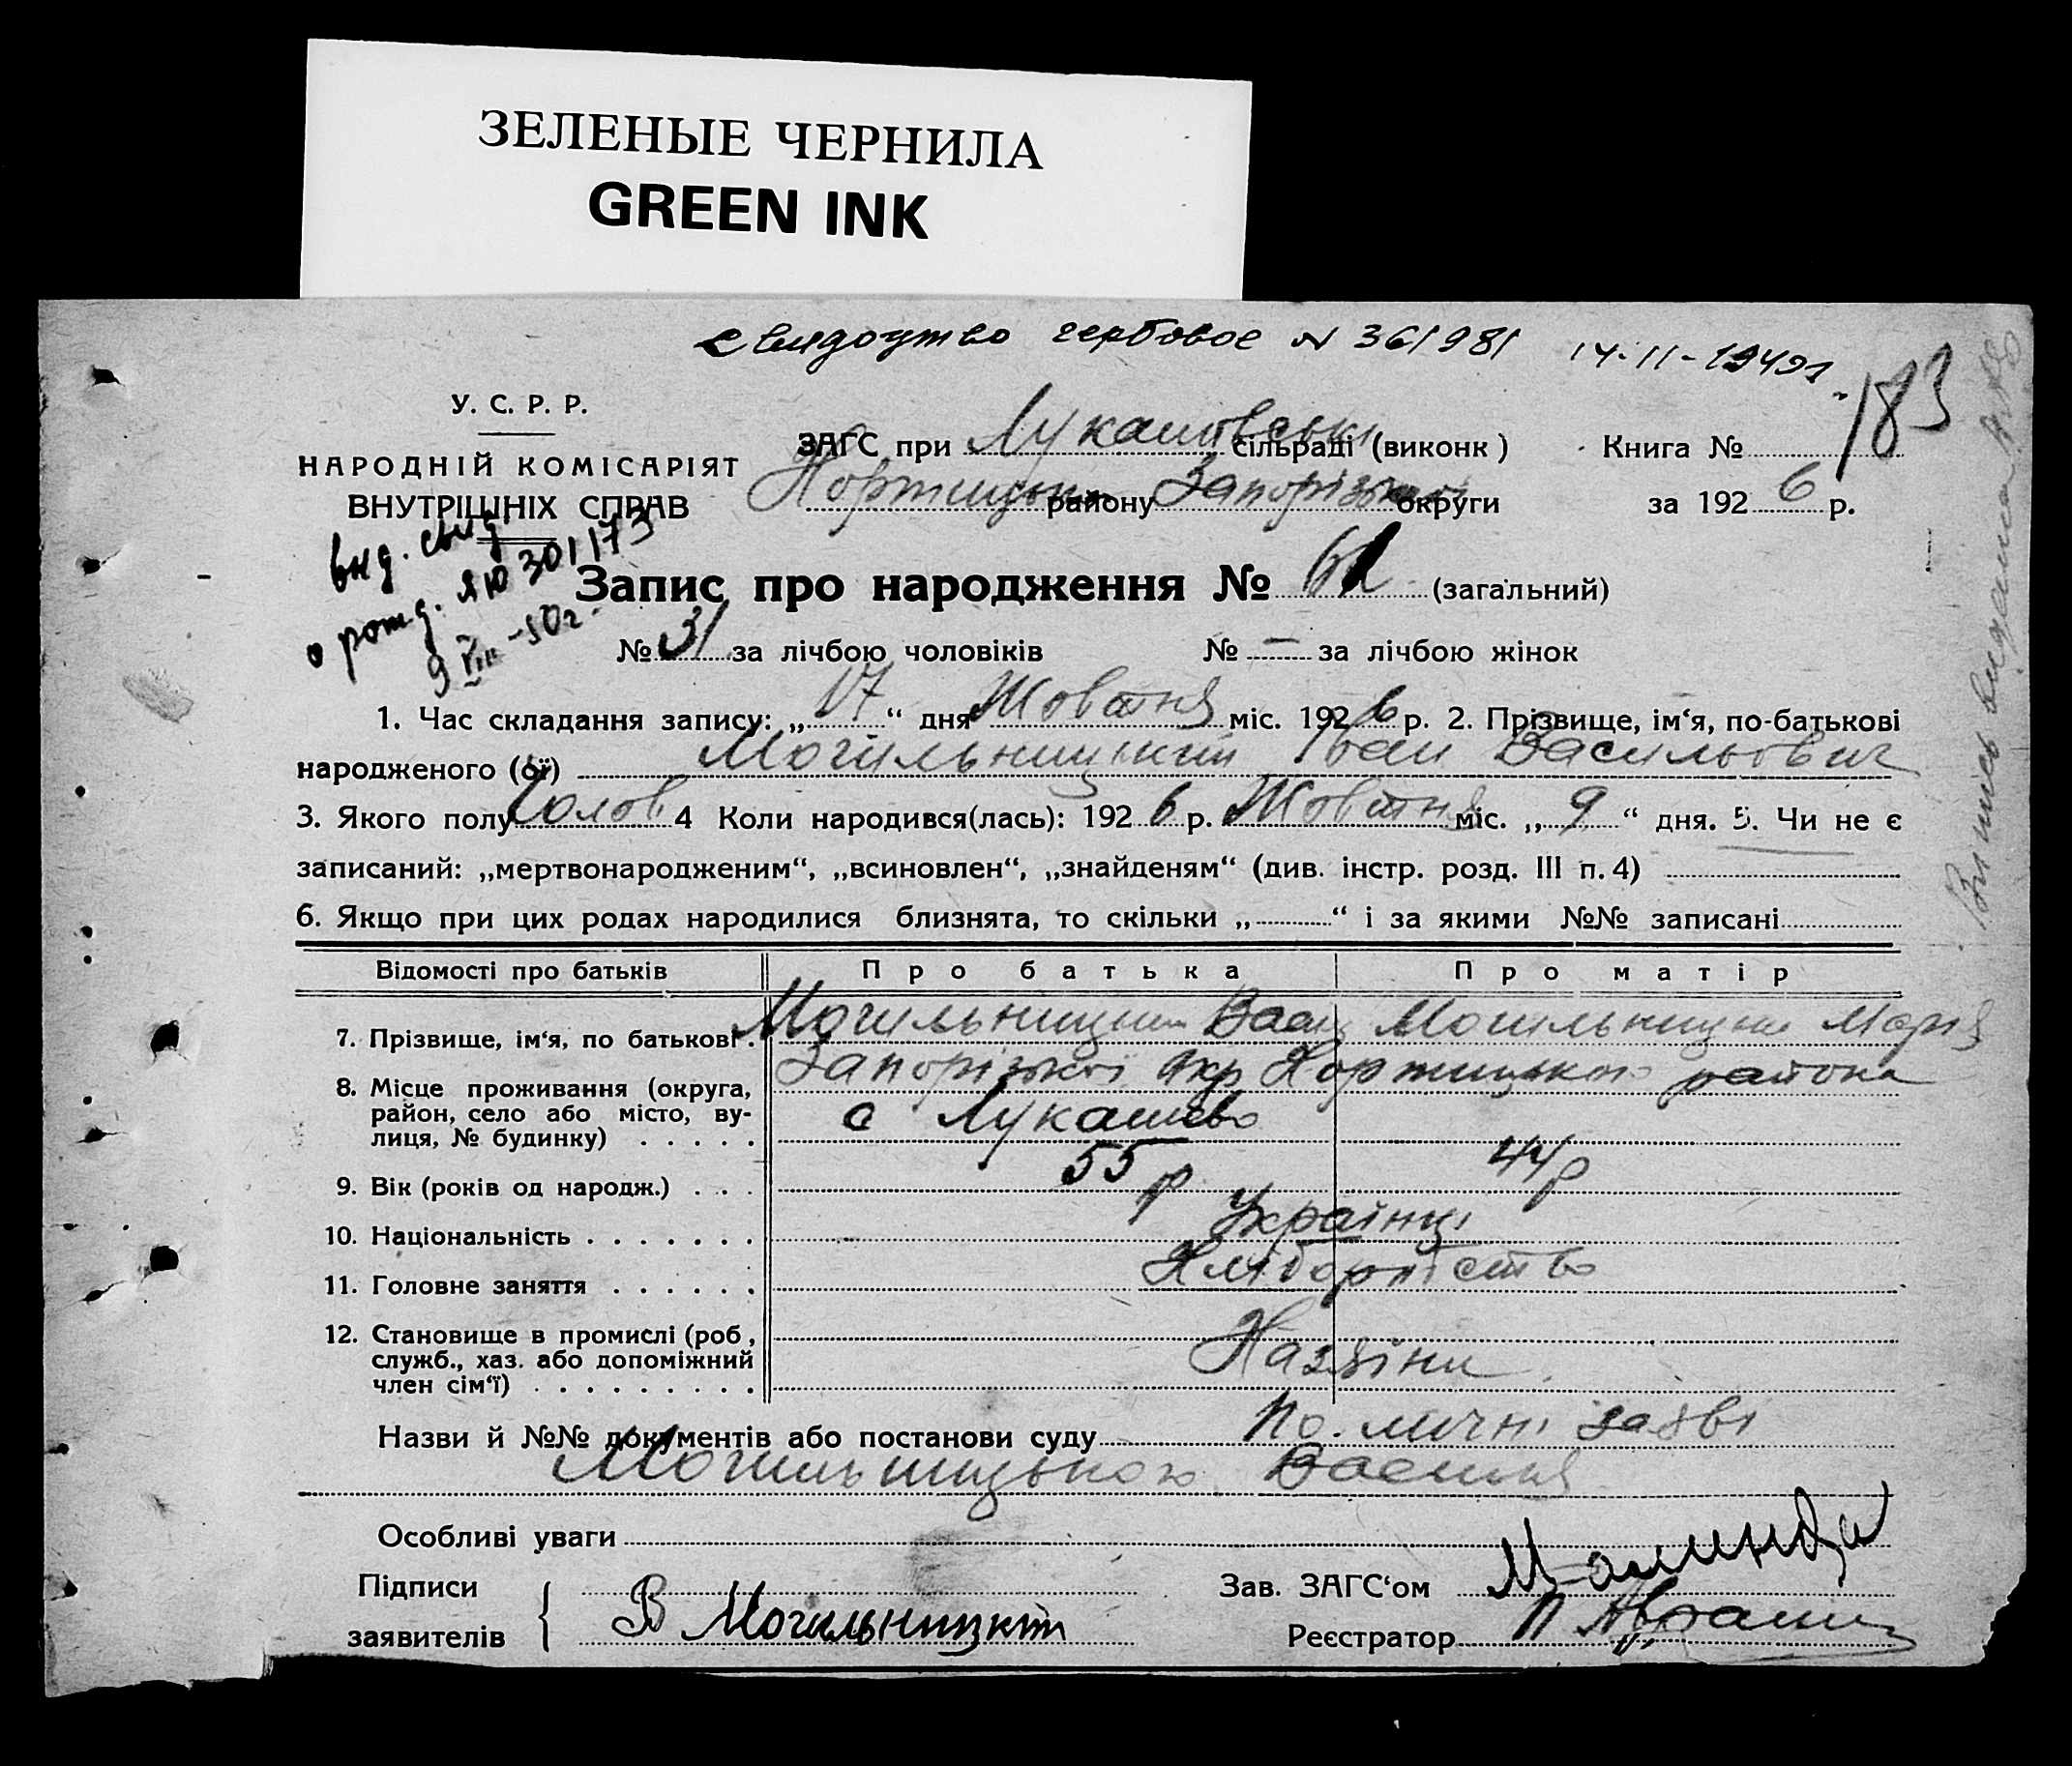 ЗЕЛЕНЫЕ ЧЕРНИЛА
GREEN INK
свидоцтво гербовое N 361981 14-11-1949
183
У. С. Р. Р.
НАРОДНІЙ КОМІСАРІЯТ
ВНУТРІШНІХ СПРАВ
ЗАГС при Лукашовські сільраді (виконк) Книга №
Хортицьк району Запорізької округи за 1926 р.
выд. свид
о рожд. ЯЮ 301173
9 VIII-50г.
Запис про народження № (загальний)
№ 31 за лічбою чоловіків № — за лічбою жінок
1. Час складання запису: „ 17 “ дня Жовтня міс. 1926 р. 2. Прізвище, ім‘я, по-батькові
народженого (ої) Могильницький Іван Васильович
3. Якого полу Чолов 4 Коли народився(лась): 1926 р. Жовтня міс. „ 9 “ дня. 5. Чи не є
записаний: „мертвонародженим“, „всиновлен“, „знайденям“ (див. інстр. розд. III п. 4)
6. Якщо при цих родах народилися близнята, то скільки „ “ і за якими №№ записані
Відомості про батьків Про батька Про матір
7. Прізвище, ім‘я, по батькові . Могильницький Вас Могильницька Марія
8. Місце проживання (округа, Запорізької Окр Хортицького района
район, село або місто, ву- с Лукашево
лиця, № будинку) . . . . .
9. Вік (років од народж.) . . . 55 р 44 р
10. Національність . . . . . . . Українці
11. Головне заняття . . . . . . Хліборобство
12. Становище в промислі (роб,
служб., хаз. або допоміжний Хазяїни
член сім‘ї) . . . . . . . . .
Назви й №№ документів або постанови суду По личні заяві
Могильницького Василя
Особливі уваги
Підписи Зав. ЗАГС‘ом
заявителів В Могильницкий Реєстратор
Выпись выдана